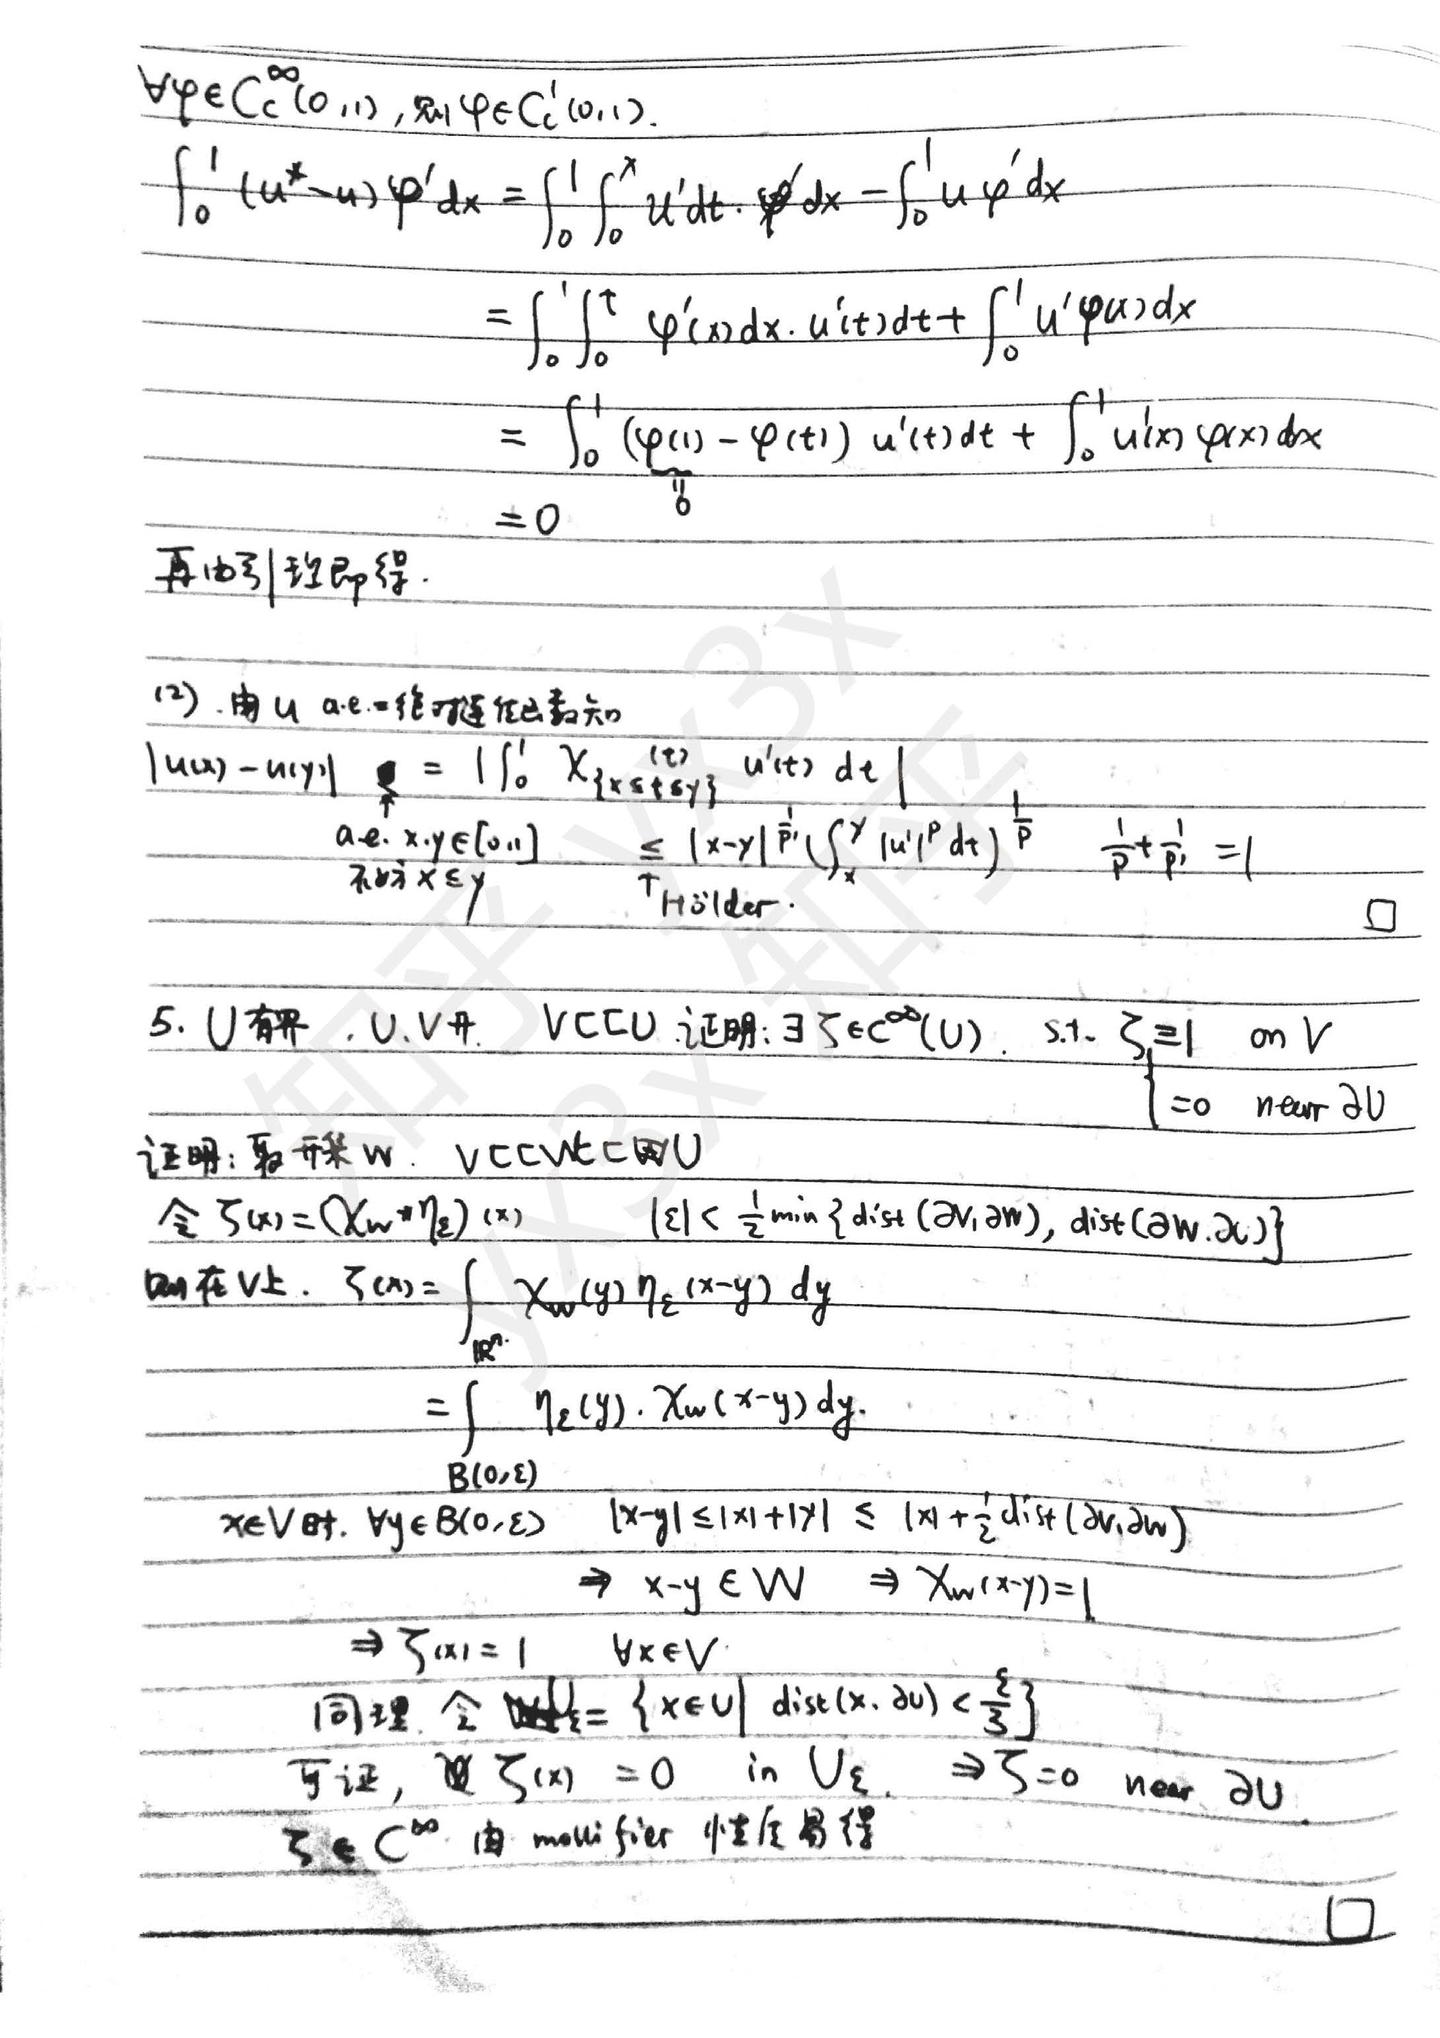 ∀φ∈C_c^∞(0,1), 则 φ∈C_c^1(0,1).
∫_0^1 (u*-u) φ' dx = ∫_0^1 ∫_0^x u'dt · φ' dx - ∫_0^1 u φ' dx
= ∫_0^1 ∫_0^t φ'(x)dx · u'(t)dt + ∫_0^1 u' φ(x) dx
= ∫_0^1 (φ(1) - φ(t)) u'(t)dt + ∫_0^1 u'(x) φ(x) dx
= 0
再由引理即得.
(2). 由 u a.e.=绝对连续函数知
|u(x)-u(y)| = |∫_0^1 χ_{{x≤t≤y}}(t) u'(t) dt|
a.e. x,y∈[0,1] ≤ |x-y|^{1/p'} (∫_x^y |u'|^p dt)^{1/p} 1/p + 1/p' = 1
不妨 x≤y ↑ Hölder.
□
5. U有界. U,V开. V⊂⊂U 证明: ∃ ζ∈C^∞(U). s.t. ζ { ≡1 on V
=0 near ∂U
证明: 取开集 W. V⊂⊂W⊂⊂U
令 ζ(x) = (χ_W * η_ε)(x) |ε| < 1/2 min{dist(∂V,∂W), dist(∂W,∂U)}
则在V上. ζ(x) = ∫_{ℝ^n} χ_W(y) η_ε(x-y) dy
= ∫_{B(0,ε)} η_ε(y) · χ_W(x-y) dy.
x∈V时. ∀y∈B(0,ε) |x-y| ≤ |x|+|y| ≤ |x| + 1/2 dist(∂V,∂W)
⇒ x-y ∈ W ⇒ χ_W(x-y) = 1
⇒ ζ(x) = 1 ∀x∈V
同理. 令 U_ε = {x∈U | dist(x,∂U) < ε/3}
可证, ζ(x) = 0 in U_ε. ⇒ ζ=0 near ∂U.
ζ ∈ C^∞ 由 mollifier 性质易得
□
知乎 yx3x
yx3x 知乎